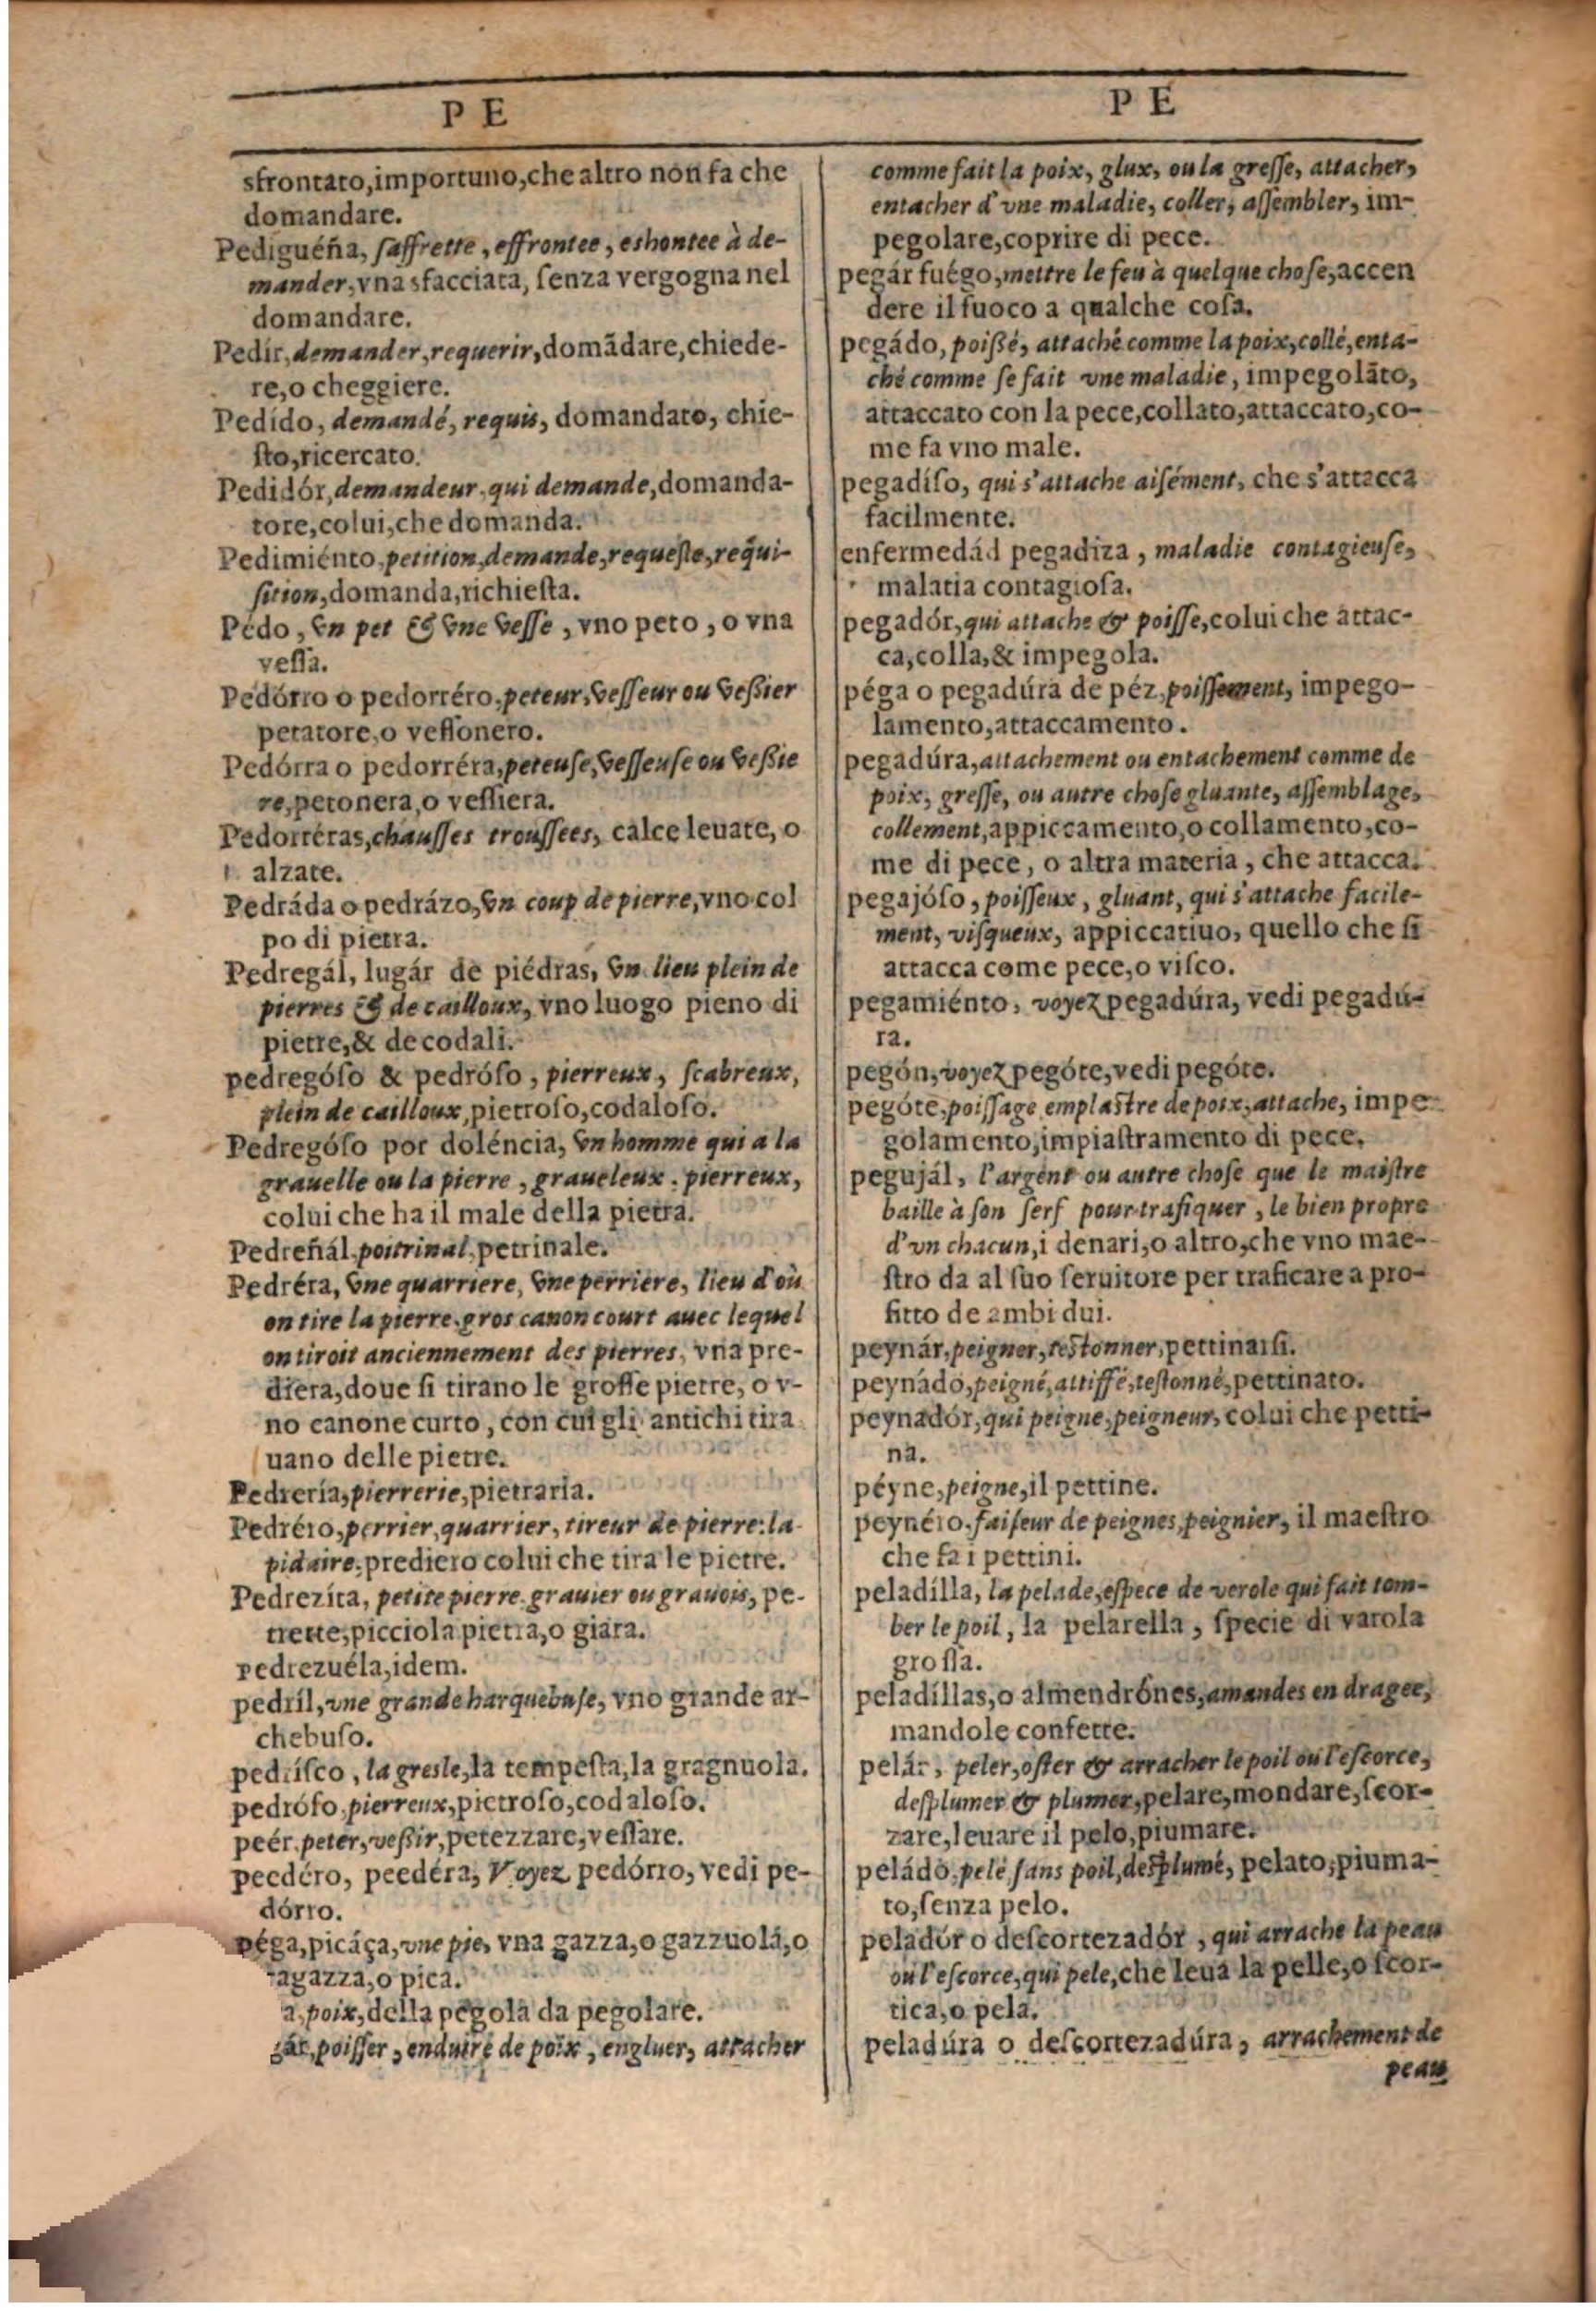 PE
sfrontato,importuno,che altro non fa che
domandare.
Pediguéña, ſaffrette, effrontee, eshontee à de-
mander,vna sfacciata, ſenza vergogna nel
domandare.
Pedír,demander,requerir,domãdare,chiede-
re,o cheggiere.
Pedído, demandé, requis, domandato, chie-
ſto,ricercato.
Pedidór,demandeur,qui demande,domanda-
tore,colui,che domanda.
Pedimiénto,petition,demande,requeſte,requi-
ſition,domanda,richieſta.
Pédo, vn pet & vne veſſe, vno peto, o vna
veſſa.
Pedórro o pedorréro,peteur,veſſeur ou veßier
petatore,o veſſonero.
Pedórra o pedorréra,peteuſe,veſſeuſe ou veßie
re,petonera,o veſſiera.
Pedorréras,chauſſes trouſſees, calce leuate, o
alzate.
Pedráda o pedrázo,vn coup de pierre,vno col
po di pietra.
Pedregál, lugár de piédras, vn lieu plein de
pierres & de cailloux, vno luogo pieno di
pietre,& de codali.
pedregóſo & pedróſo, pierreux, ſcabreux,
plein de cailloux,pietroſo,codaloſo.
Pedregóſo por doléncia, vn homme qui a la
grauelle ou la pierre, graueleux, pierreux,
colui che ha il male della pietra.
Pedreñál,poitrinal,petrinale.
Pedréra, vne quarriere, vne perriere, lieu d'où
on tire la pierre,gros canon court auec lequel
on tiroit anciennement des pierres, vna pre-
diera,doue ſi tirano le groſſe pietre, o v-
no canone curto, con cui gli antichi tira
uano delle pietre.
Pedrería,pierrerie,pietraria.
Pedréro,perrier,quarrier, tireur de pierre:la-
pidaire,prediero colui che tira le pietre.
Pedrezíta, petite pierre,grauier ou grauois, pe-
trette,picciola pietra,o giara.
pedrezuéla,idem.
pedríl,vne grande harquebuſe, vno grande ar-
chebuſo.
pedríſco, la gresle,la tempeſta,la gragnuola.
pedróſo,pierreux,pietroſo,codaloſo.
peér,peter,veßir,petezzare,veſſare.
peedéro, peedéra, Voyez pedórro, vedi pe-
dórro.
péga,picáça,vne pie, vna gazza,o gazzuola,o
agazza,o pica.
a,poix,della pegola da pegolare.
gár,poiſſer, enduire de poix, engluer, attacher
PE
comme fait la poix, glux, ou la greſſe, attacher,
entacher d'vne maladie, coller, aſſembler, im-
pegolare,coprire di pece.
pegár fuégo,mettre le feu à quelque choſe,accen
dere il fuoco a qualche coſa.
pegádo, poißé, attaché comme la poix,collé,enta-
ché comme ſe fait vne maladie, impegolãto,
attaccato con la pece,collato,attaccato,co-
me fa vno male.
pegadíſo, qui s'attache aiſément, che s'attacca
facilmente.
enfermedád pegadiza, maladie contagieuſe,
malatia contagioſa.
pegadór,qui attache & poiſſe,colui che attac-
ca,colla,& impegola.
péga o pegadúra de péz,poiſſement, impego-
lamento,attaccamento.
pegadúra,attachement ou entachement comme de
poix, greſſe, ou autre choſe gluante, aſſemblage,
collement,appiccamento,o collamento,co-
me di pece, o altra materia, che attacca.
pegajóſo, poiſſeux, gluant, qui s'attache facile-
ment, viſqueux, appiccatiuo, quello che ſi
attacca come pece,o viſco.
pegamiénto, voyez pegadúra, vedi pegadú-
ra.
pegón,voyez pegóte,vedi pegóte.
pegóte,poiſſage emplaſtre de poix,attache, impe
golamento,impiaſtramento di pece.
pegujál, l'argent ou autre choſe que le maiſtre
baille à ſon ſerf pour trafiquer, le bien propre
d'vn chacun,i denari,o altro,che vno mae-
ſtro da al ſuo ſeruitore per traficare a pro-
fitto de ambi dui.
peynár,peigner,teſtonner,pettinarſi.
peynádo,peigné,attiffé,teſtonné,pettinato.
peynadór,qui peigne,peigneur,colui che petti-
na.
péyne,peigne,il pettine.
peynéro,faiſeur de peignes,peignier, il maeſtro
che fa i pettini.
peladílla, la pelade,eſpece de verole qui fait tom-
ber le poil, la pelarella, ſpecie di varola
groſſa.
peladíllas,o almendrónes,amandes en dragee,
mandole confette.
pelár, peler,oſter & arracher le poil ou l'eſcorce,
deſplumer & plumer,pelare,mondare,ſcor-
zare,leuare il pelo,piumare.
peládo,pelé,ſans poil,deſplumé, pelato,piuma-
to,ſenza pelo.
peladór o deſcortezadór, qui arrache la peau
ou l'eſcorce,qui pele,che leua la pelle,o ſcor-
tica,o pela.
peladúra o deſcortezadúra, arrachement de
peau